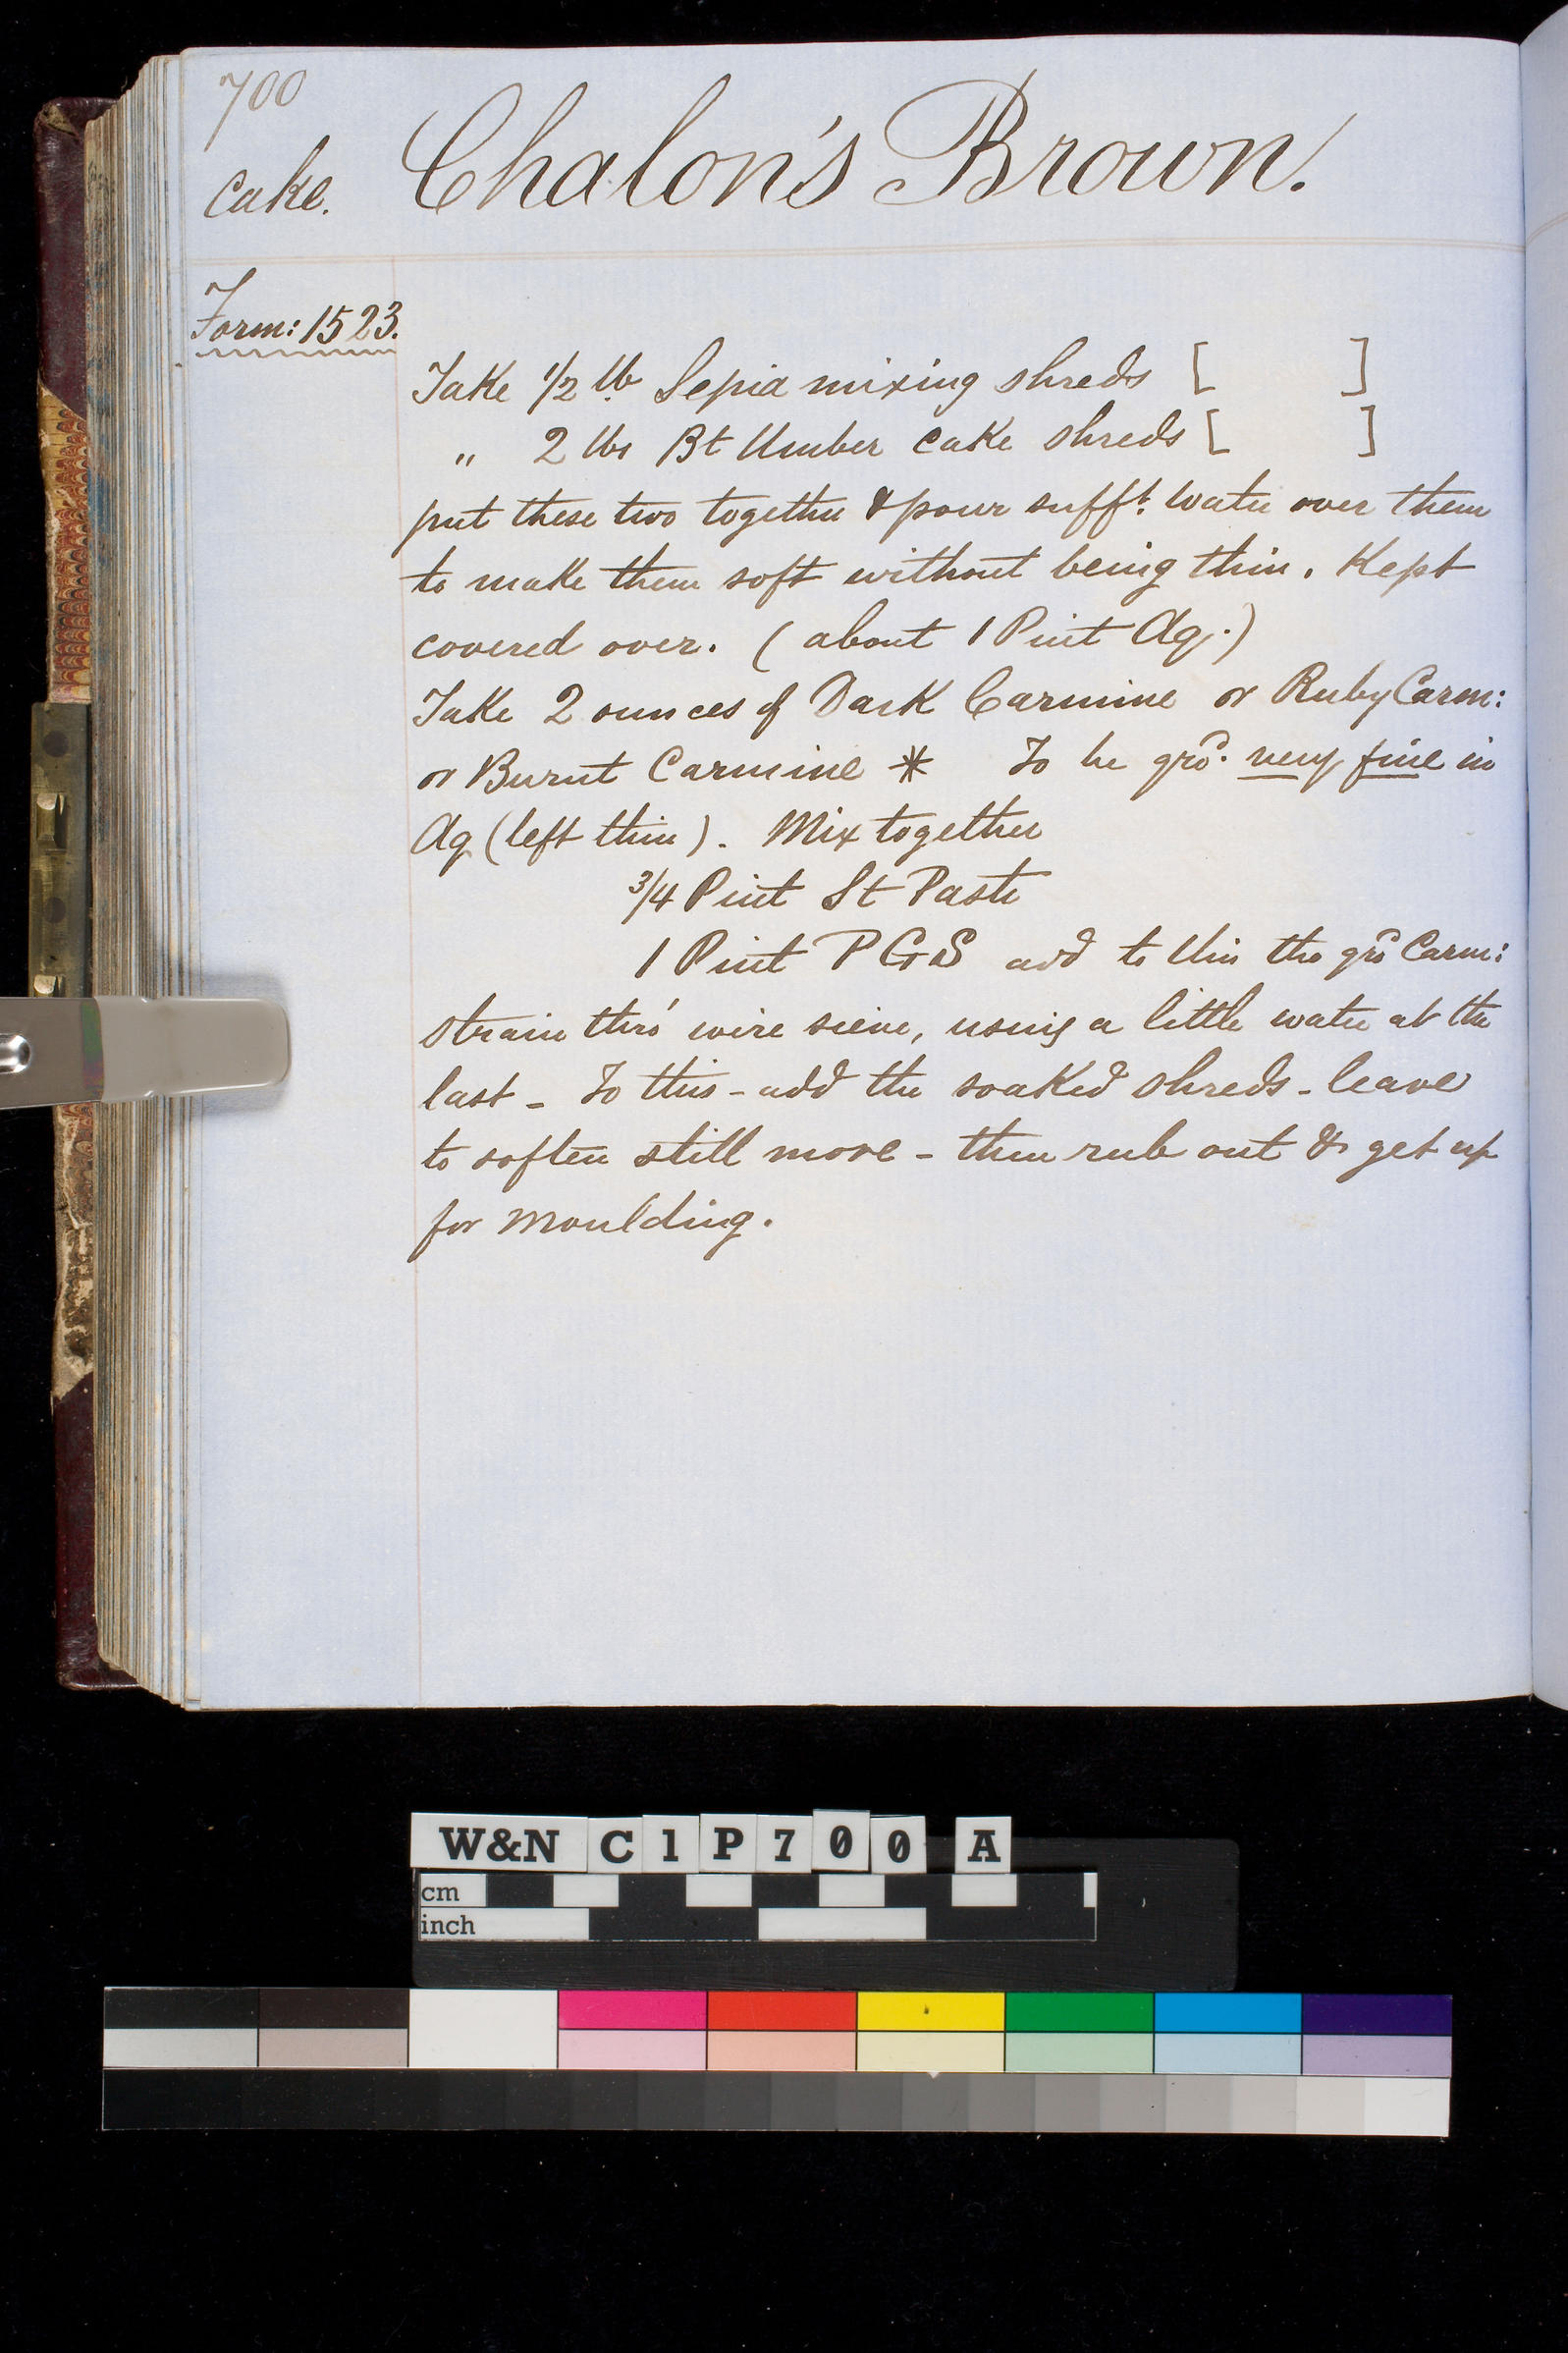 700
Cake. Chalon's Brown.
Form: 1523.
Take 1/2 lb Sepia mixing shreds [ ]
" 2 lbs Bt Umber Cake shreds [ ]
put these two together & pour sufft. water over them
to make them soft without being thin. Kept
covered over. ( about 1 Pint Aq.)
Take 2 ounces of Dark Carmine or Ruby Carm:
or Burnt Carmine * To be grd. very fine in
Aq (left thin). Mix together
3/4 Pint St Paste
1 Pint P G S add to this the grd Carm:
strain thro' wire sieve, using a little water at the
last - To this - add the soaked shreds - leave
to soften still more - then rub out & get up
for moulding.
W&N C1P700 A
cm
inch